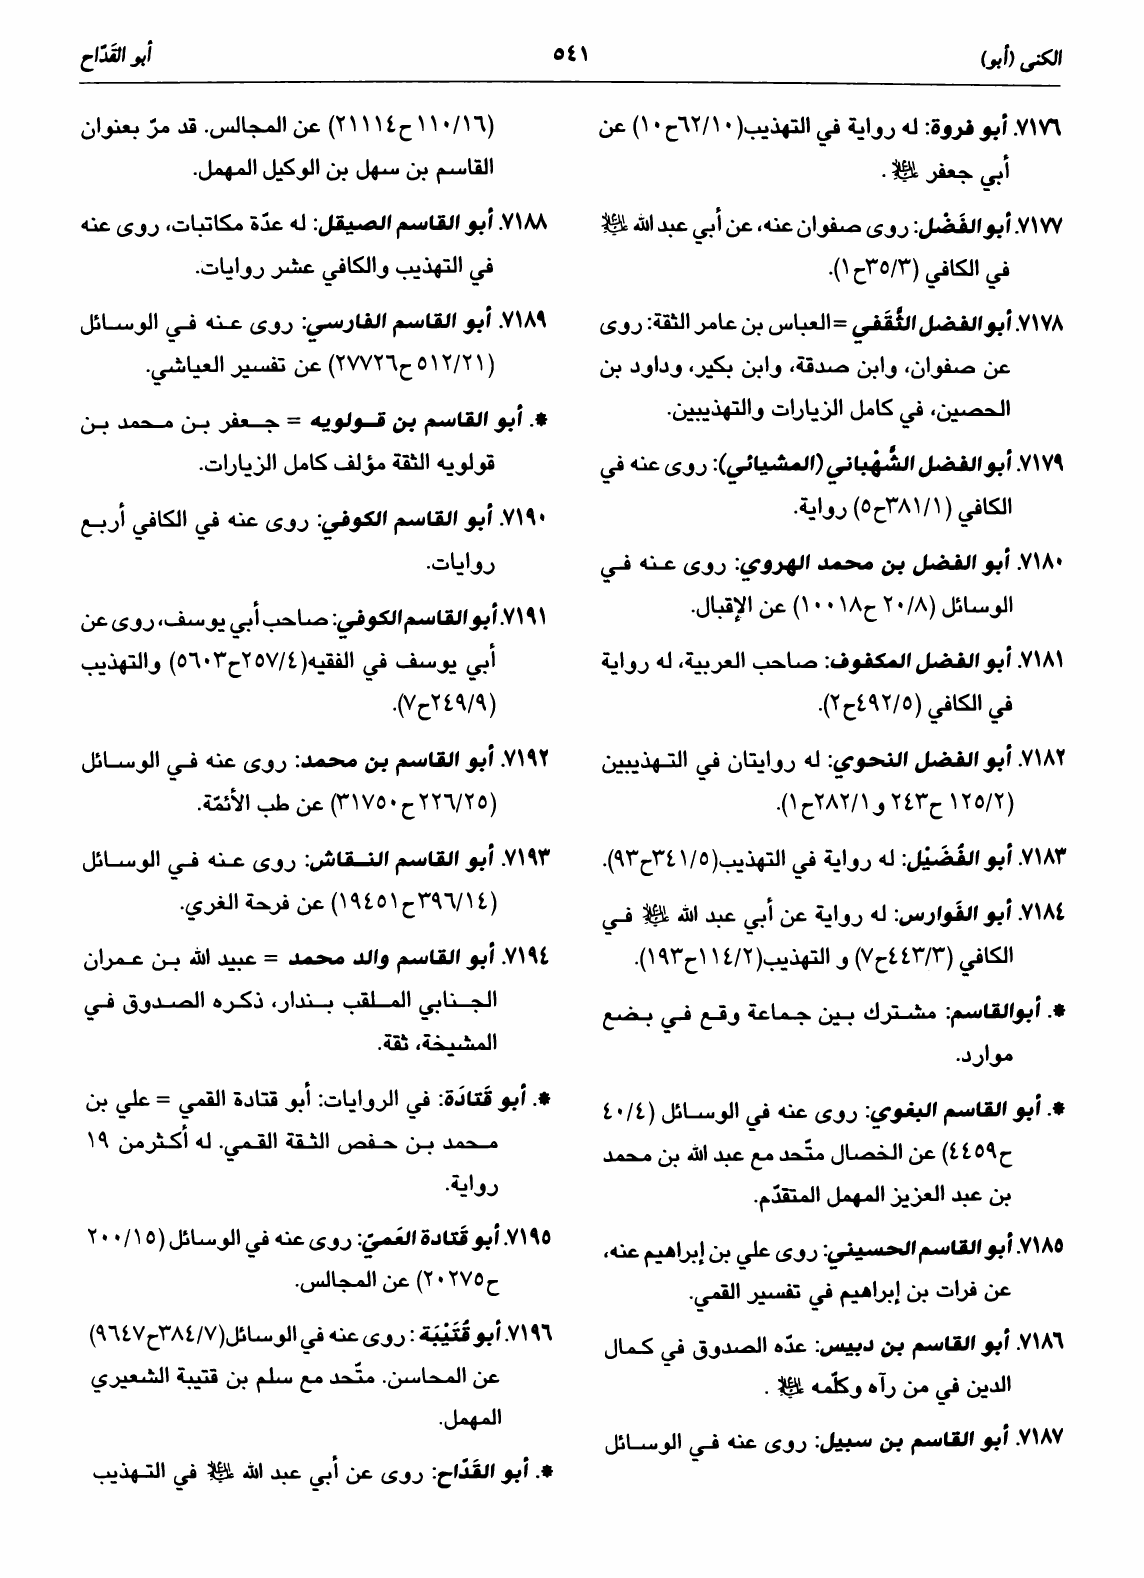 الكنى (أبو)
٥٤١
أبو القَدّاح
٧١٧٦. أبو فروة: له رواية في التهذيب(٦٢/١٠ح١٠) عن
أبي جعفر ﷺ .
٧١٧٧. أبو الفَضْل: روى صفوان عنه، عن أبي عبد الله ﷺ
في الكافي (٣٥/٣ح١).
٧١٧٨. أبو الفضل الثَّقَفي =العباس بن عامر الثقة: روى
عن صفوان، وابن صدقة، وابن بكير، وداود بن
الحصين، في كامل الزيارات والتهذيبين.
٧١٧٩. أبو الفضل الشَّهْباني (المشيائي): روى عنه في
الكافي (٣٨١/١ح٥) رواية.
٧١٨٠. أبو الفضل بن محمد الهروي: روى عنه في
الوسائل (٢٠/٨ ح١٠٠١٨) عن الإقبال.
٧١٨١. أبو الفضل المكفوف: صاحب العربية، له رواية
في الكافي (٤٩٢/٥ح٢).
٧١٨٢. أبو الفضل النحوي: له روايتان في التهذيبين
(١٢٥/٢ ح٢٤٣ و٢٨٢/١ح١).
٧١٨٣. أبو الفُضَيْل: له رواية في التهذيب(٣٤١/٥ح٩٣).
٧١٨٤. أبو الفَوارس: له رواية عن أبي عبد الله ﷺ في
الكافي (٤٤٣/٣ح٧) و التهذيب(١١٤/٢ح١٩٣).
*. أبوالقاسم: مشترك بين جماعة وقع في بضع
موارد.
*. أبو القاسم البغوي: روى عنه في الوسائل (٤٠/٤
ح٤٤٥٩) عن الخصال متّحد مع عبد الله بن محمد
بن عبد العزيز المهمل المتقدّم.
٧١٨٥. أبو القاسم الحسيني: روى علي بن إبراهيم عنه،
عن فرات بن إبراهيم في تفسير القمي.
٧١٨٦. أبو القاسم بن دبيس: عدّه الصدوق في كمال
الدين في من رآه وكلّمه ﷺ .
٧١٨٧. أبو القاسم بن سبيل: روى عنه في الوسائل
(١١٠/١٦ ح٢١١١٤) عن المجالس. قد مرّ بعنوان
القاسم بن سهل بن الوكيل المهمل.
٧١٨٨. أبو القاسم الصيقل: له عدّة مكاتبات، روى عنه
في التهذيب والكافي عشر روايات.
٧١٨٩. أبو القاسم الفارسي: روى عنه في الوسائل
(٥١٢/٢١ ح٢٧٧٢٦) عن تفسير العياشي.
*. أبو القاسم بن قولويه = جعفر بن محمد بن
قولويه الثقة مؤلف كامل الزيارات.
٧١٩٠. أبو القاسم الكوفي: روى عنه في الكافي أربع
روايات.
٧١٩١. أبو القاسم الكوفي: صاحب أبي يوسف، روى عن
أبي يوسف في الفقيه(٢٥٧/٤ح٥٦٠٣) والتهذيب
(٢٤٩/٩ح٧).
٧١٩٢. أبو القاسم بن محمد: روى عنه في الوسائل
(٢٢٦/٢٥ ح٣١٧٥٠) عن طب الأئمّة.
٧١٩٣. أبو القاسم النقاش: روى عنه في الوسائل
(٣٩٦/١٤ ح١٩٤٥١) عن فرحة الغري.
٧١٩٤. أبو القاسم والد محمد = عبيد الله بن عمران
الجنابي الملقب بندار، ذكره الصدوق في
المشيخة، ثقة.
*. أبو قَتادَة: في الروايات: أبو قتادة القمي = علي بن
محمد بن حفص الثقة القمي. له أكثرمن ١٩
رواية.
٧١٩٥. أبو قَتادة العَميّ: روى عنه في الوسائل (٢٠٠/١٥
ح٢٠٢٧٥) عن المجالس.
٧١٩٦. أبو قُتَيْبَة : روى عنه في الوسائل(٣٨٤/٧ح٩٦٤٧)
عن المحاسن. متّحد مع سلم بن قتيبة الشعيري
المهمل.
*. أبو القَدّاح: روى عن أبي عبد الله ﷺ في التهذيب